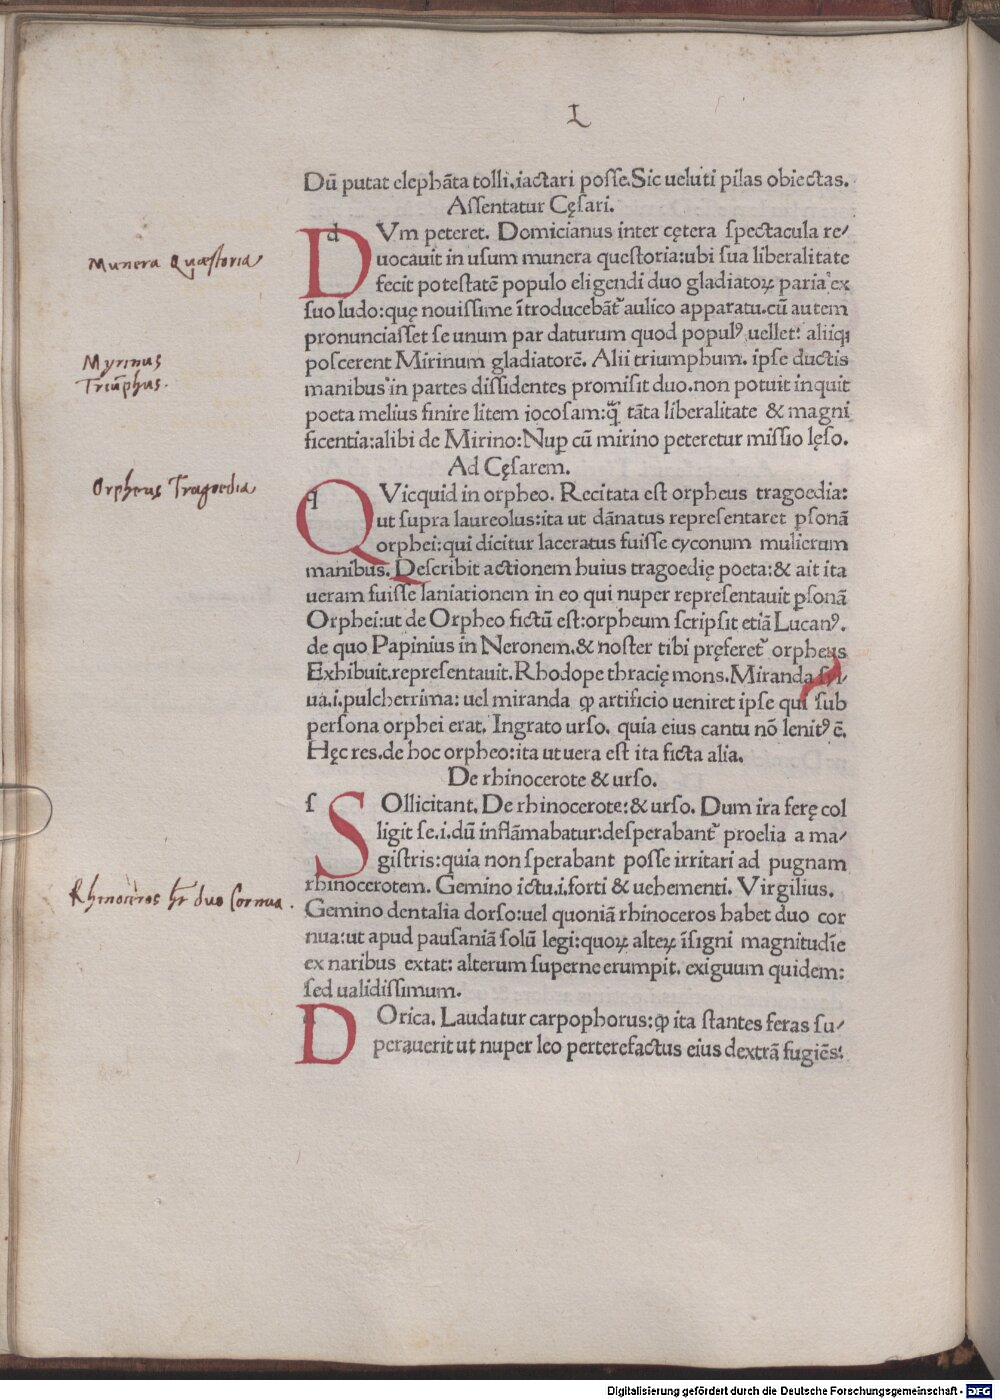 L
Dū putat elephāta tolli.iactari posse.Sic ueluti pilas obiectas.
Assentatur Cęsari.
d
DVm peteret. Domicianus inter cętera spectacula re/
uocauit in usum munera questoria:ubi sua liberalitate
Munera Quæstoria
fecit potestatē populo eligendi duo gladiatoꝝ paria ex
suo ludo:quę nouissime ītroducebāt᷑ aulico apparatu.cū autem
pronunciasset se unum par daturum quod populꝰ uellet: aliiqꝫ
Myrinus
poscerent Mirinum gladiatorē. Alii triumphum. ipse ductis
Triūphus.
manibus in partes dissidentes promisit duo.non potuit inquit
poeta melius finire litem iocosam:q̄ tāta liberalitate & magni
ficentia:alibi de Mirino:Nuꝑ cū mirino peteretur missio lęso.
Ad Cęsarem.
Orpheus Tragoedia
q
QVicquid in orpheo. Recitata est orpheus tragoedia:
ut supra laureolus:ita ut dānatus representaret ꝑsonā
orphei:qui dicitur laceratus fuisse cyconum mulierum
manibus. Describit actionem huius tragoedię poeta:& ait ita
ueram fuisse laniationem in eo qui nuper representauit ꝑsonā
Orphei:ut de Orpheo fictū est:orpheum scripsit etiā Lucanꝰ.
de quo Papinius in Neronem.& noster tibi pręferet᷑ orpheus
Exhibuit.representauit. Rhodope thracię mons.Miranda syl/
ua.i.pulcherrima: uel miranda ꝙ artificio ueniret ipse qui sub
persona orphei erat. Ingrato urso. quia eius cantu nō lenitꝰ ē.
Hęc res.de hoc orpheo:ita ut uera est ita ficta alia.
De rhinocerote & urso.
s
SOllicitant. De rhinocerote:& urso. Dum ira ferę col
ligit se.i.dū inflāmabatur:desperabant᷑ proelia a ma/
gistris:quia non sperabant posse irritari ad pugnam
rhinocerotem. Gemino ictu.i.forti & uehementi. Virgilius.
Rhinoceros hr̄ duo Cornua.
Gemino dentalia dorso:uel quoniā rhinoceros habet duo cor
nua:ut apud pausaniā solū legi:quoꝝ alteꝝ īsigni magnitudīe
ex naribus extat: alterum superne erumpit. exiguum quidem:
sed ualidissimum.
DOrica. Laudatur carpophorus:ꝙ ita stantes feras su/
perauerit ut nuper leo perterefactus eius dextrā fugiēs:
Digitalisierung gefördert durch die Deutsche Forschungsgemeinschaft - DFG